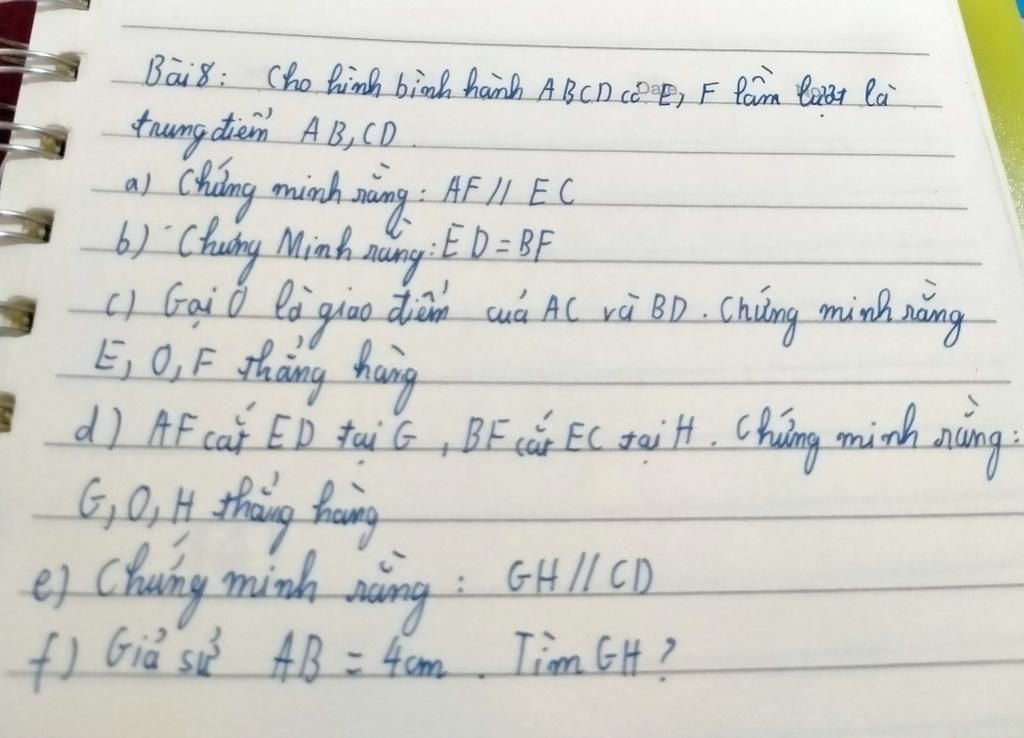 Bài 8: Cho hình bình hành ABCD có E, F lần lượt là
trung điểm AB, CD.
a) Chứng minh rằng: AF // EC
b) Chứng Minh rằng: ED = BF
c) Gọi O là giao điểm của AC và BD. Chứng minh rằng
E, O, F thẳng hàng
d) AF cắt ED tại G, BF cắt EC tại H. Chứng minh rằng:
G, O, H thẳng hàng
e) Chứng minh rằng: GH // CD
f) Giả sử AB = 4cm. Tìm GH?